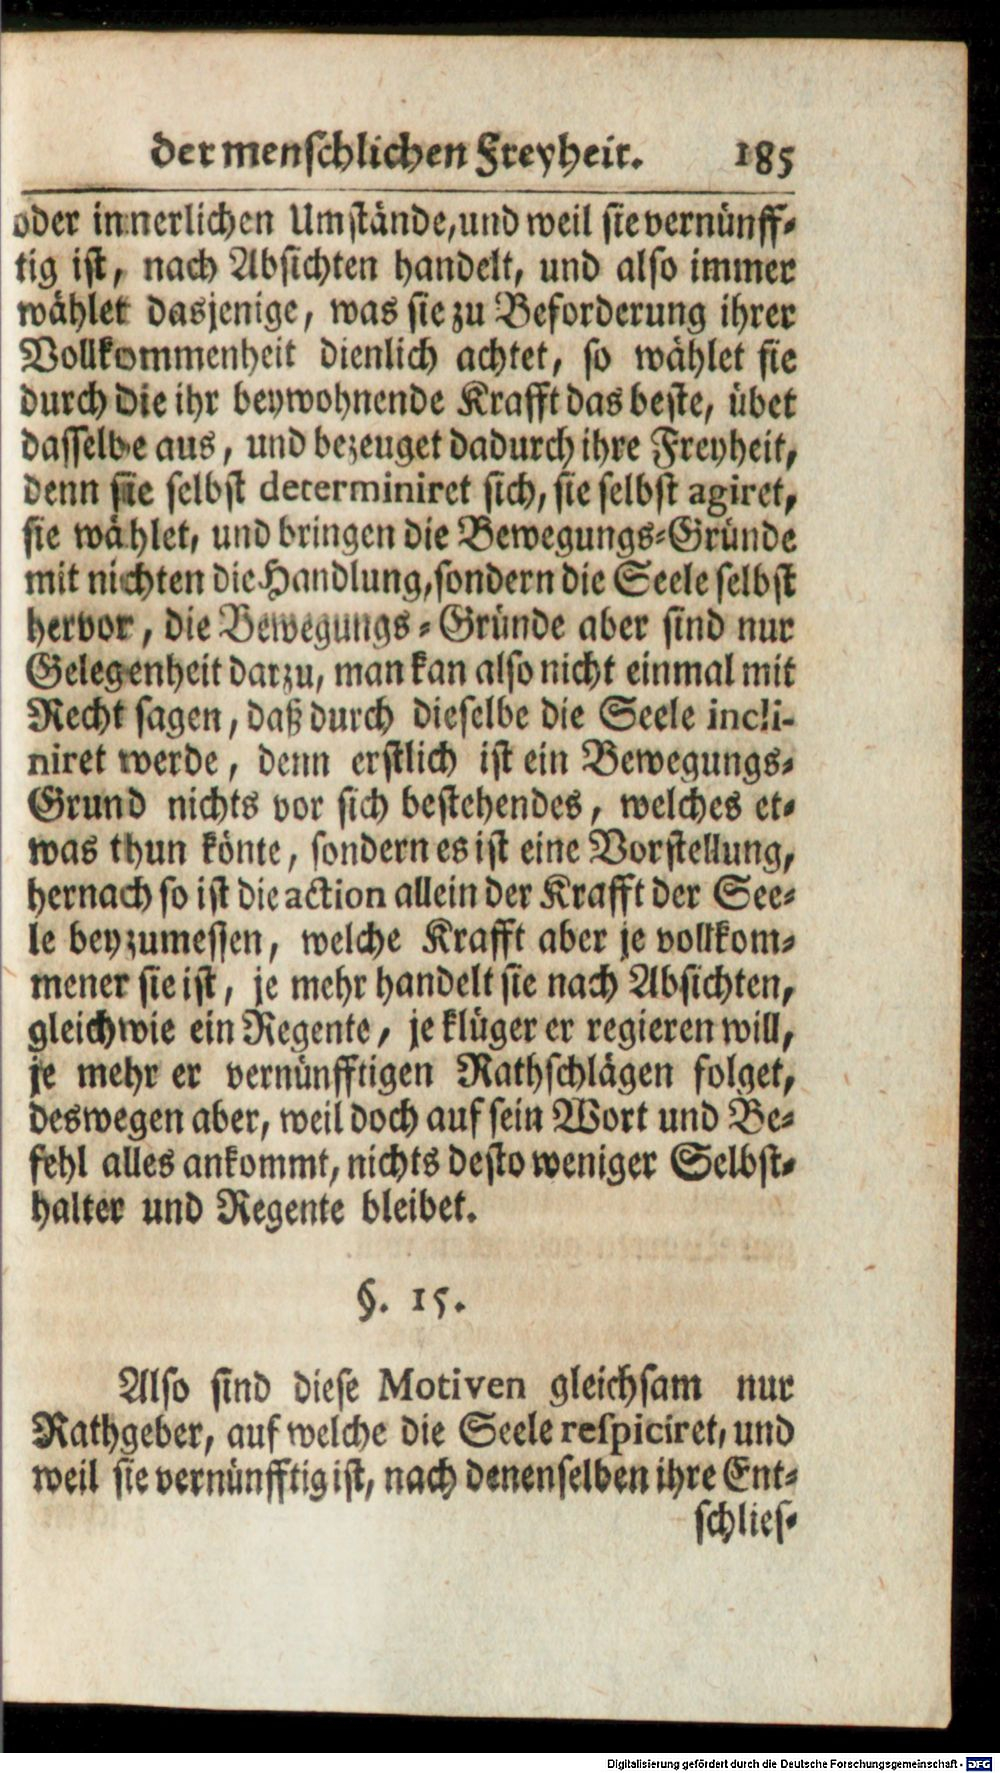 der menschlichen Freyheit. 185
oder innerlichen Umstände, und weil sie vernünff-
tig ist, nach Absichten handelt, und also immer
wählet dasjenige, was sie zu Beforderung ihrer
Vollkommenheit dienlich achtet, so wählet sie
durch die ihr beywohnende Krafft das beste, übet
dasselbe aus, und bezeuget dadurch ihre Freyheit,
denn sie selbst determiniret sich, sie selbst agiret,
sie wählet, und bringen die Bewegungs-Gründe
mit nichten die Handlung, sondern die Seele selbst
hervor, die Bewegungs-Gründe aber sind nur
Gelegenheit darzu, man kan also nicht einmal mit
Recht sagen, daß durch dieselbe die Seele incli-
niret werde, denn erstlich ist ein Bewegungs-
Grund nichts vor sich bestehendes, welches et-
was thun könte, sondern es ist eine Vorstellung,
hernach so ist die action allein der Krafft der See-
le beyzumessen, welche Krafft aber je vollkom-
mener sie ist, je mehr handelt sie nach Absichten,
gleichwie ein Regente, je klüger er regieren will,
je mehr er vernünfftigen Rathschlägen folget,
deswegen aber, weil doch auf sein Wort und Be-
fehl alles ankommt, nichts desto weniger Selbst-
halter und Regente bleibet.
§. 15.
Also sind diese Motiven gleichsam nur
Rathgeber, auf welche die Seele respiciret, und
weil sie vernünfftig ist, nach denenselben ihre Ent-
schlies-
Digitalisierung gefördert durch die Deutsche Forschungsgemeinschaft - DFG